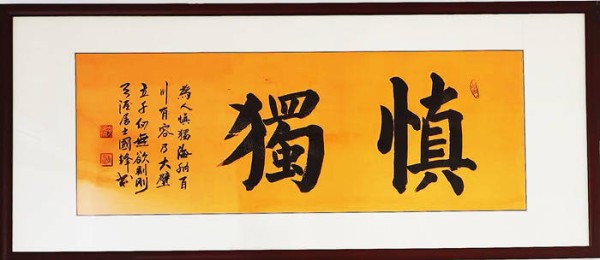 慎獨
為人慎獨海納百
川有容乃大壁
立千仞無欲則剛
居士國鋒書